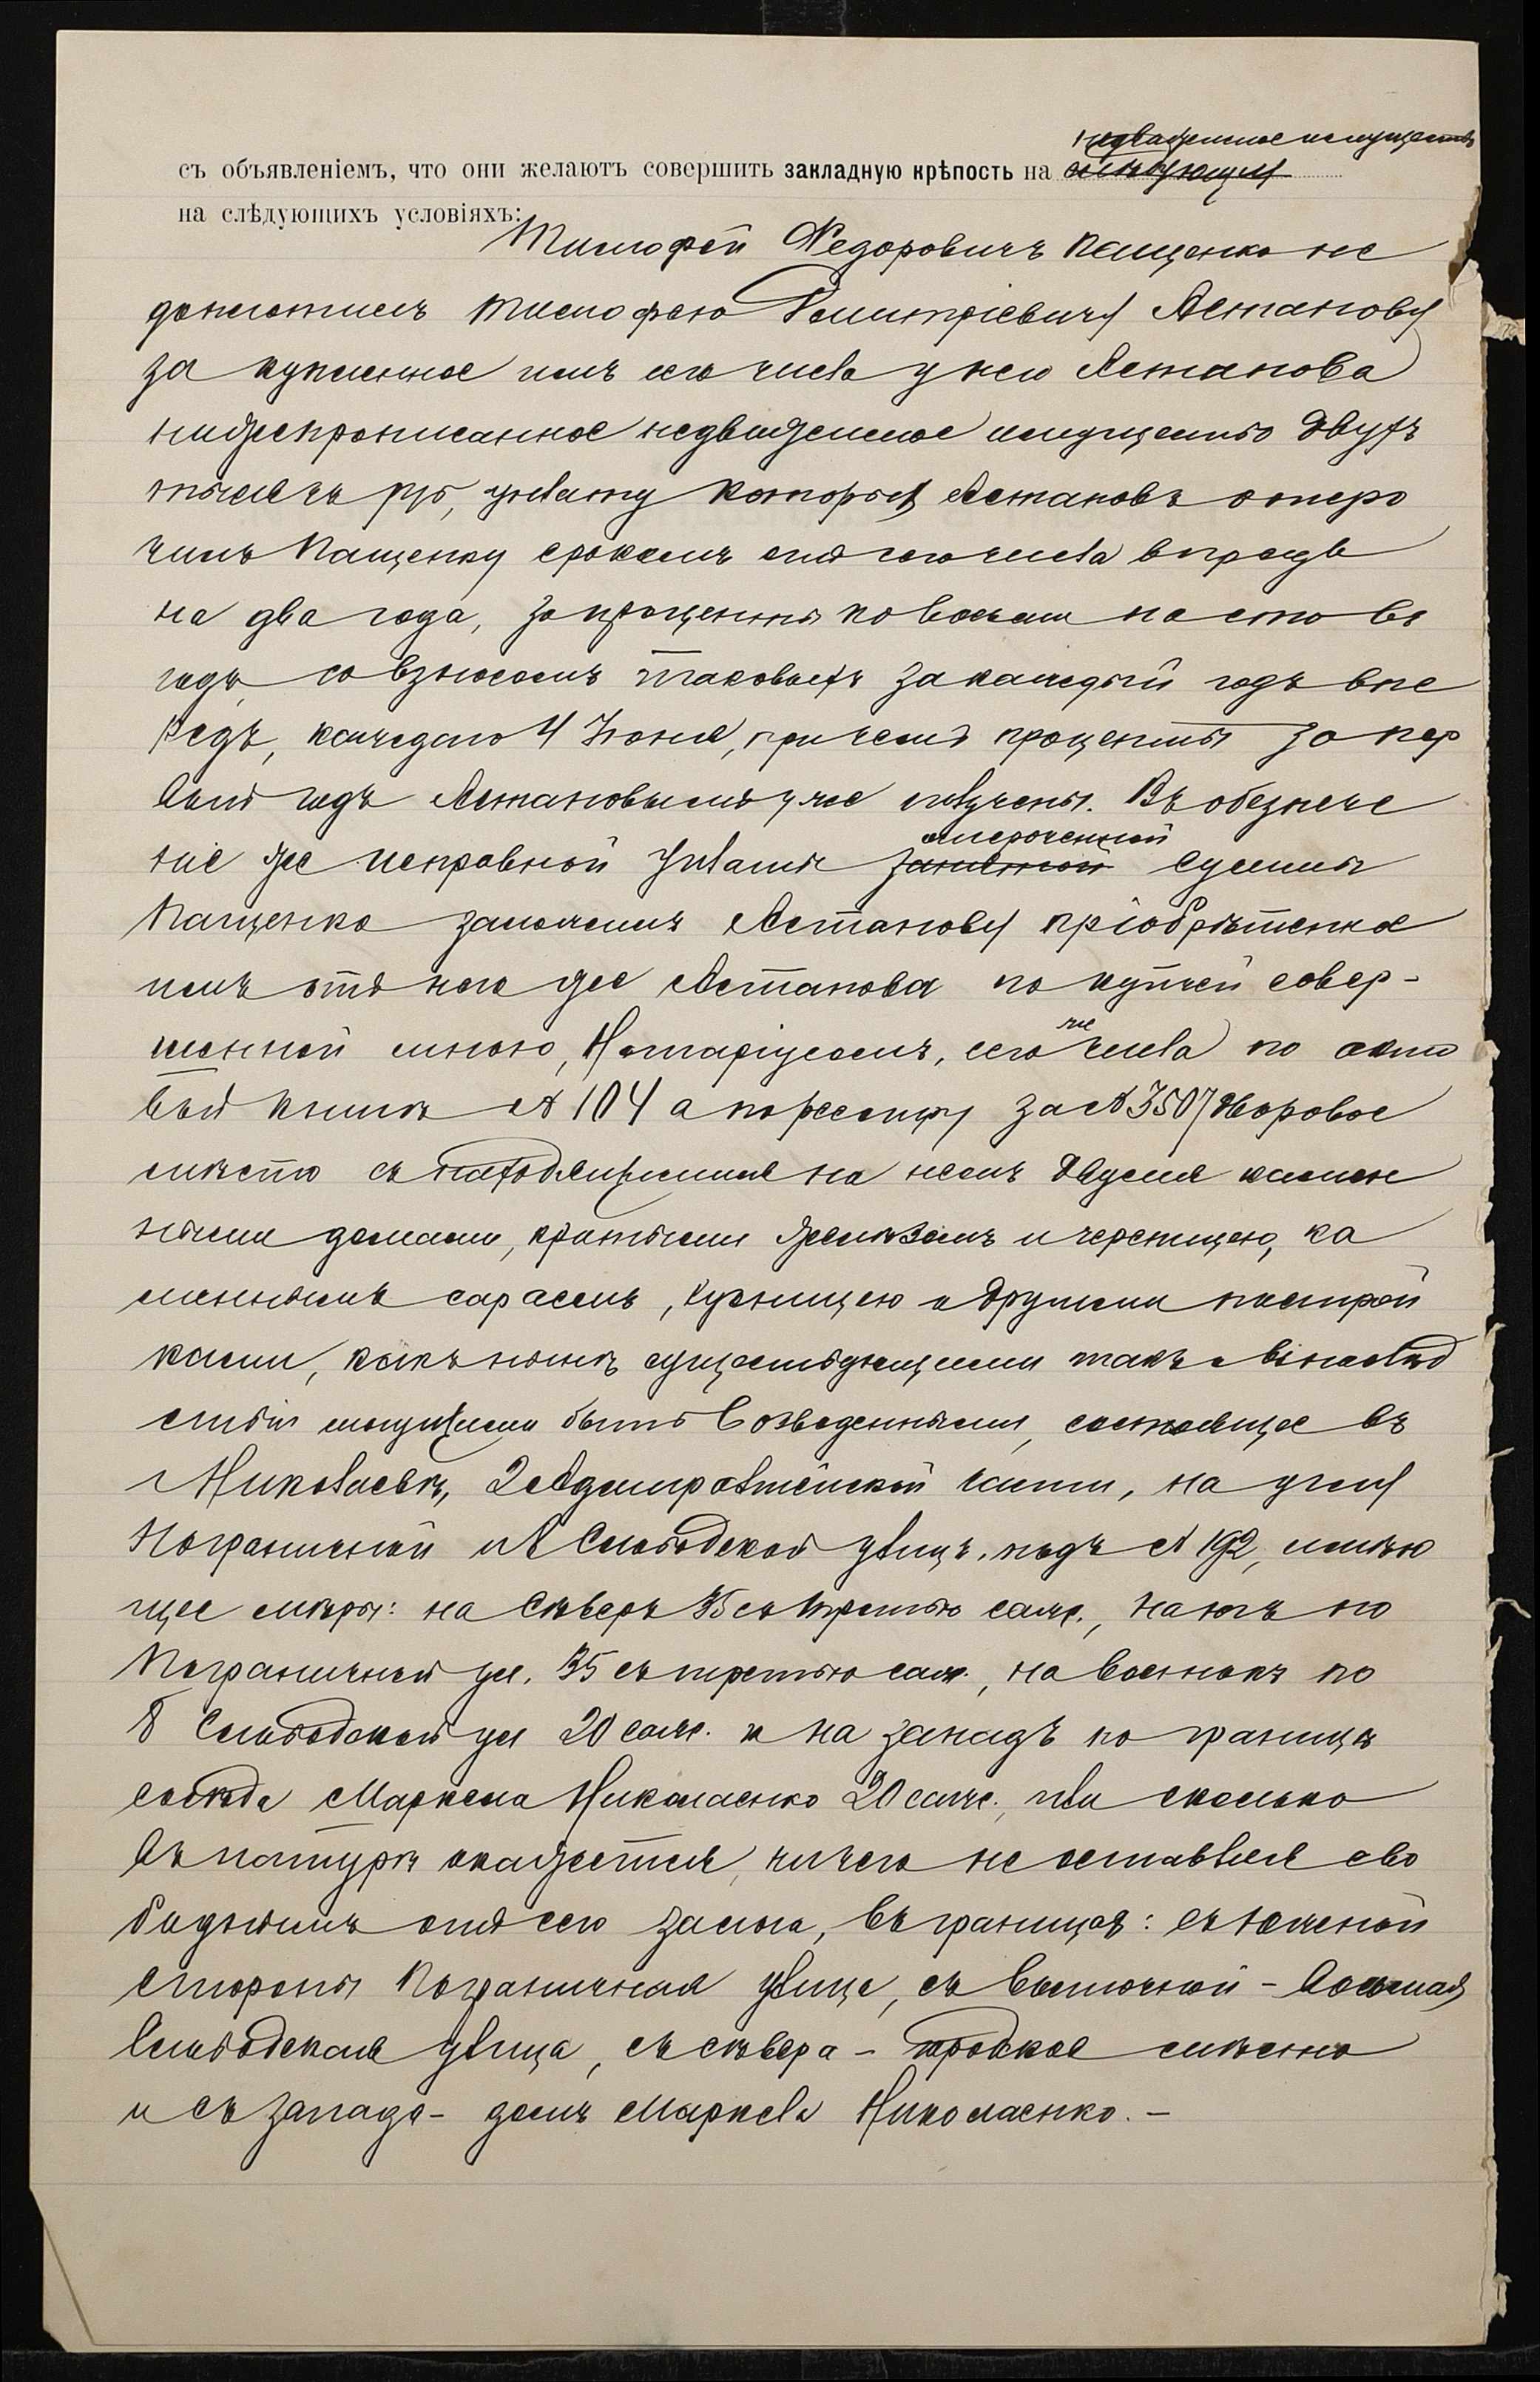 недвижимое имущество
съ объявленіемъ, что они желаютъ совершить закладную крѣпость на
на слѣдующихъ условіяхъ:
Тимофей Федоровичъ Пащенко не
доплатилъ Тимофею Дмитріевичу Астанову
за купленное имъ сего числа у него Астанова
нижепрописанное недвижимое имущество двухъ
тысячъ руб, уплату которыхъ Астановъ отсро
чилъ Пащенку срокомъ отъ сего числа впредь
на два года, за проценты по восьми на сто въ
годъ, со взносомъ таковыхъ за каждый годъ впе
редъ, каждаго 4 Іюня, при чемъ проценты за пер
вый годъ Астановымъ уже получены. Въ обезпече
ніе же исправной уплаты отсроченной суммы
Пащенко заложилъ Астанову пріобрѣтенное
имъ отъ него же Астанова по купчей совер-
шенной мною, Нотаріусомъ, сего же числа по акто
вой книгѣ № 104 а по реестру за № 3507 дворовое
мѣсто съ находящимися на немъ двумя камен
ными домами, крытыми желѣзомъ и черепицею, ка
меннымъ сараемъ, кузницею и другими построй
ками, какъ нынѣ существующими такъ и впослѣд
ствіи могущими быть возведенными, состоящее въ
Николаевѣ, 2 Адмиралтейской части, на углу
Пограничной и 8 Слободской улицъ, подъ № 192, имѣю
щее мѣры: на сѣверъ 35 съ третью саж., на югъ по
Пограничной ул. 35 съ третью саж., на востокъ по
8 Слободской ул 20 саж. и на западъ по границѣ
сосѣда Маркела Николаенко 20 саж., или сколько
въ натурѣ окажется, ничего не оставляя сво
боднымъ отъ сего залога, въ границахъ: съ южной
стороны Пограничная улица, съ восточной - восьмая
Слободская улица, съ сѣвера - мѣсто
и съ запада - домъ Маркела Николаенко. -